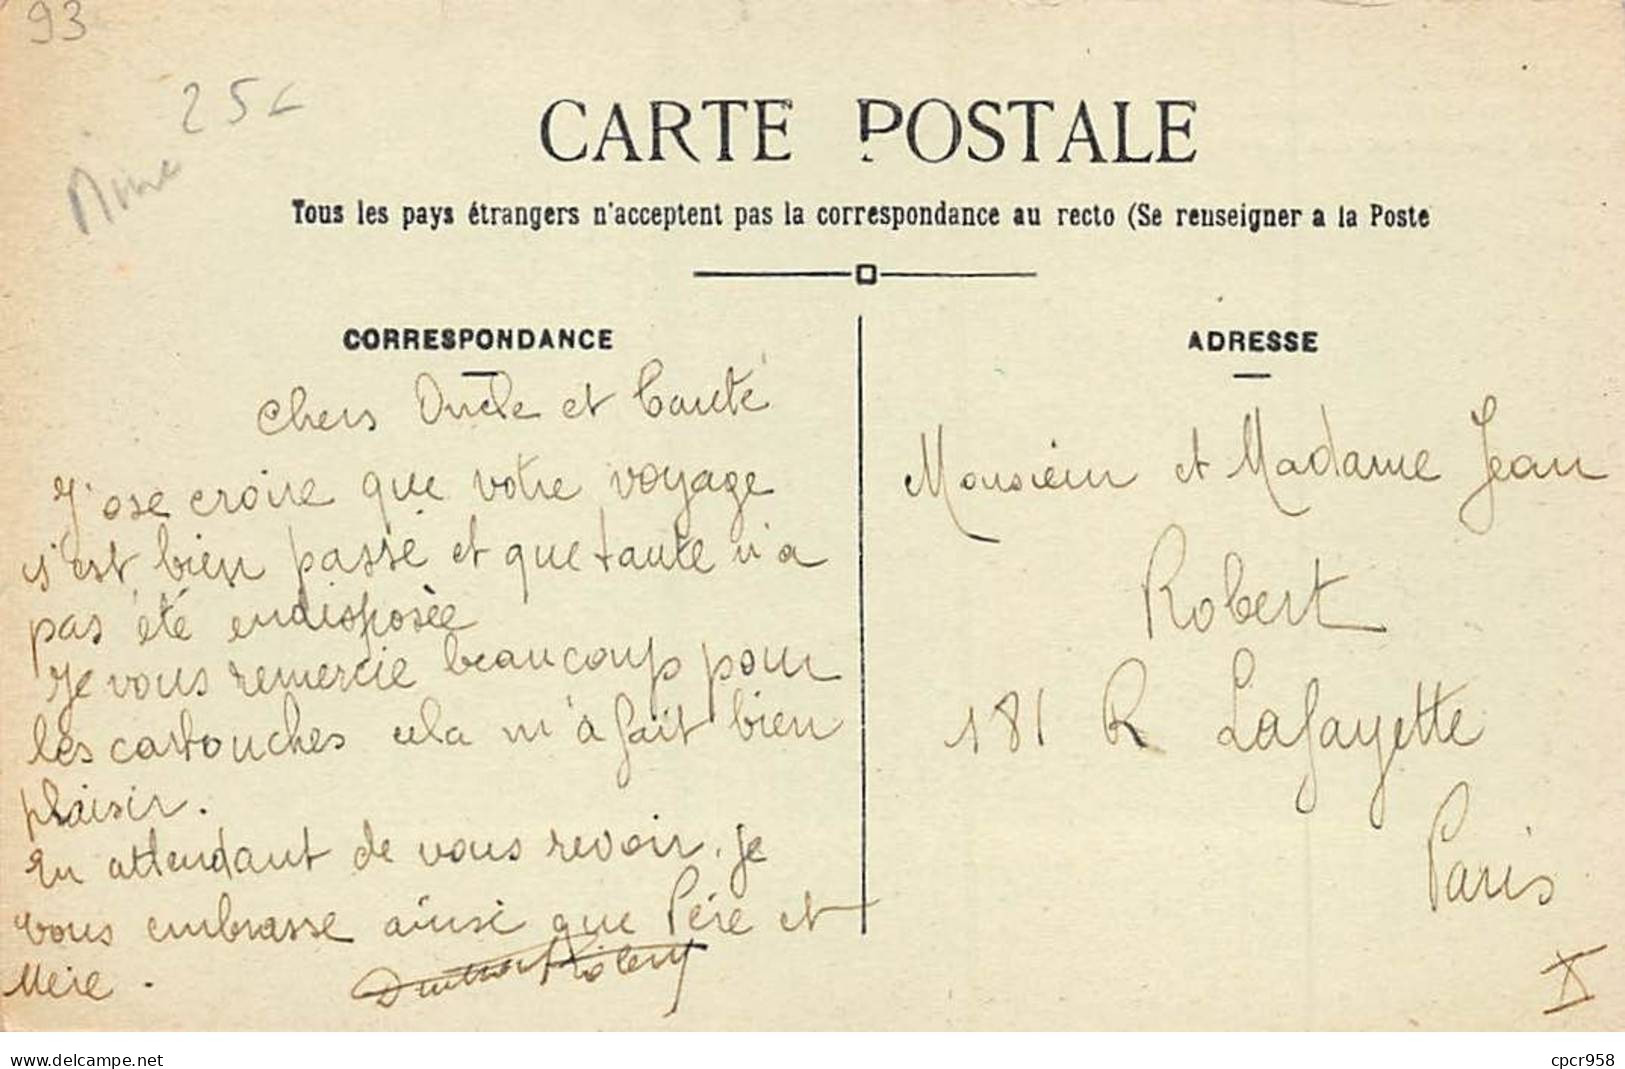 93
25c
CARTE POSTALE
Tous les pays étrangers n'acceptent pas la correspondance au recto (Se renseigner a la Poste
CORRESPONDANCE
Chers Oncle et Tante
J'ose croire que votre voyage
s'est bien passé et que tante n'a
pas été endisposée
Je vous remercie beaucoup pour
les cartouches cela m'a fait bien
plaisir.
En attendant de vous revoir. Je
vous embrasse ainsi que Père et
Mère.
ADRESSE
Monsieur et Madame Jean
Robert
181 R Lafayette
Paris
X
delcampe.net
cpcr958